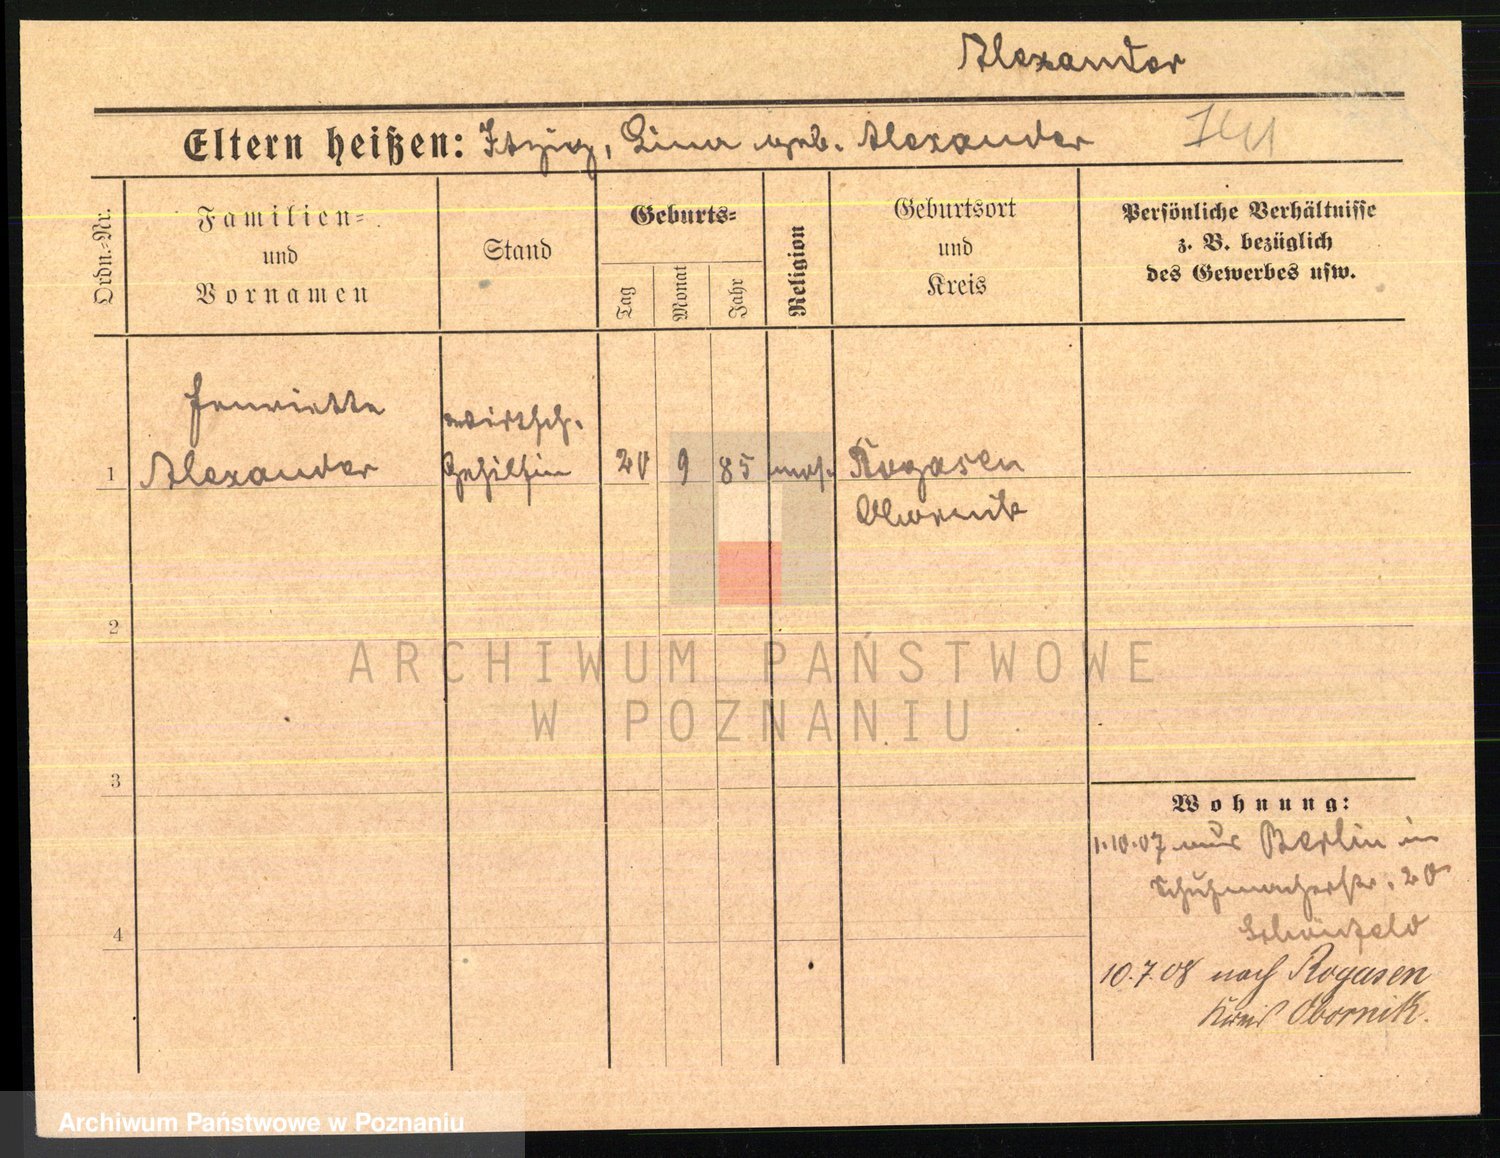 Alexander
Eltern heißen: Itzig, Lina geb. Alexander
Ordn.-Nr.
Familien- und Vornamen
Stand
Geburts-
Tag
Monat
Jahr
Religion
Geburtsort und Kreis
Persönliche Verhältnisse z. B. bezüglich des Gewerbes usw.
1
Henriette
Alexander
Wirtsch.
Gehilfin
20 9 85 mos.
Rogasen
Obornik
2
3
4
Wohnung:
1.10.07 aus Berlin in
Schuhmacherstr. 20
Schönfeld
10.7.08 nach Rogasen
Kreis Obornik.
ARCHIWUM PAŃSTWOWE
W POZNANIU
Archiwum Państwowe w Poznaniu